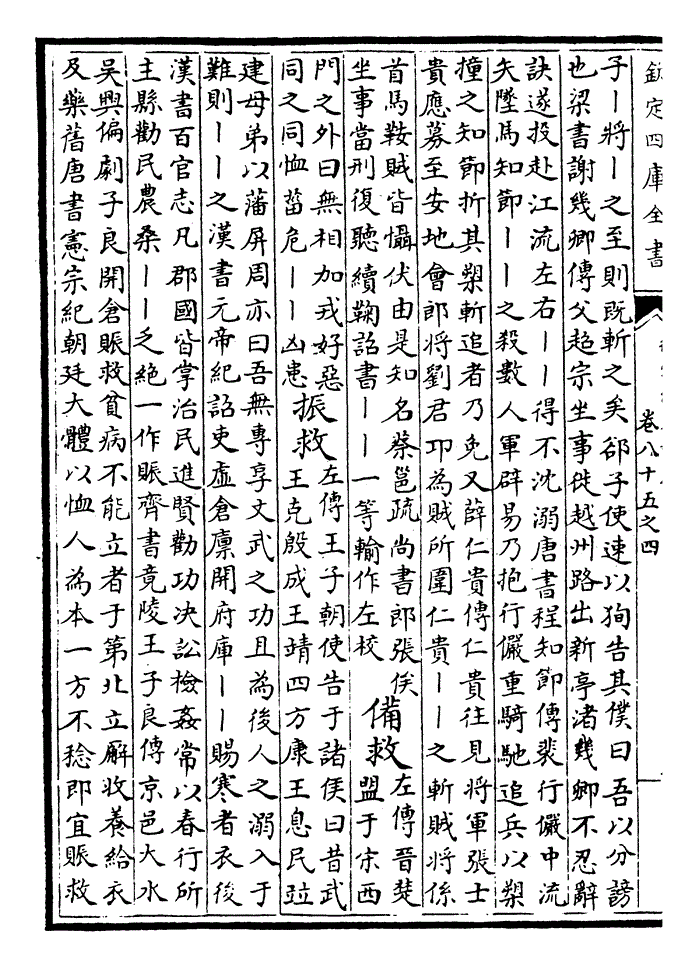 欽定四庫全書
卷八十五之四
子｜將｜之至則既斬之矣郤子使速以狥告其僕曰吾以分謗
也梁書謝幾卿傳父超宗坐事徙越州路出新亭渚幾卿不忍辭
訣遂投赴江流左右｜｜得不沈溺唐書程知節傳裴行儼中流
矢墜馬知節｜｜之殺數人軍辟易乃抱行儼重騎馳追兵以槊
撞之知節折其槊斬追者乃免又薛仁貴傳仁貴往見將軍張士
貴應募至安地會郎將劉君卭為賊所圍仁貴｜｜之斬賊將係
首馬鞍賊皆懾伏由是知名蔡邕疏尚書郎張俟
坐事當刑復聽續鞠詔書｜｜一等輸作左校
備救
左傳晉楚
盟于宋西
門之外曰無相加戎好惡
同之同恤菑危｜｜凶患
振救
左傳王子朝使告于諸侯曰昔武
王克殷成王靖四方康王息民竝
建母弟以藩屏周亦曰吾無專享文武之功且為後人之溺入于
難則｜｜之漢書元帝紀詔吏虛倉廩開府庫｜｜賜寒者衣後
漢書百官志凡郡國皆掌治民進賢勸功決訟檢姦常以春行所
主縣勸民農桑｜｜乏絕一作賑齊書竟陵王子良傳京邑大水
吳興偏劇子良開倉賑救貧病不能立者于第北立廨收養給衣
及藥舊唐書憲宗紀朝廷大體以恤人為本一方不稔即宜賑救